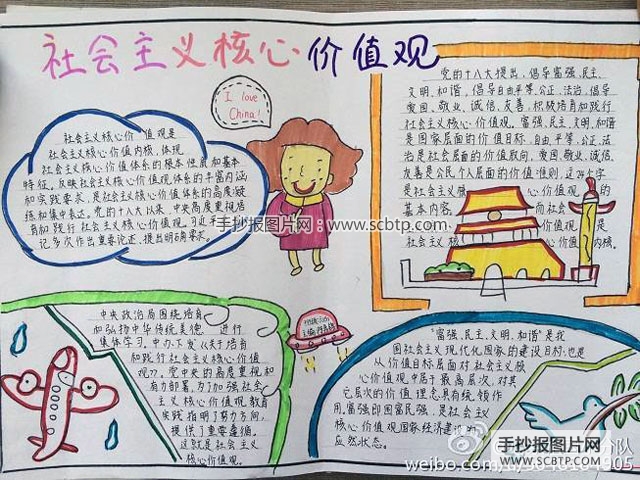 社会主义核心价值观
I love
China!
社会主义核心价值观是
社会主义核心价值内核，体现
社会主义核心价值体系的根本性质和基本
特征。反映社会主义核心价值观体系的丰富内涵
和实践要求，是社会主义核心价值体系的高度凝
练和集中表达。党的十八大以来，中央高度重视培
育和践行社会主义核心价值观。习近平
记多次作出重要论正，提出明确要求。
党的十八大提出，倡导富强、民主、
文明、和谐，倡导自由平等、公正、法治，倡导
爱国、敬业、诚信、友善，积极培育和践行
社会主义核心价值观。富强、民主、文明、和谐
是国家层面的价值目标，自由、平等、公正、法
治是社会层面的价值取向，爱国、敬业、诚信、
友善是公民个人层面的价值准则，这24个字
是社会主义核心价值观的
基本内容。而社会
主义核心价值观是
社会主义核心价值内核。
手抄报图片网
www.scbtp.com
中央政治局围绕培育
和弘扬中华传统美德进行
集体学习，中办下发《关于培育
和践行社会主义核心价值
观》，党中央的高度重视和
有力部署，为了加强社会
主义核心价值观教育
实践指明了努力方向，
提供了重要遵循。
这就是社会主义
核心价值观。
"富强、民主、文明、和谐"是我
国社会主义现代化国家的建设目标，也是
从价值目标层面对社会主义核
心价值观中居于最高层次，对其
它层次的价值理念具有统领作
用。富强即国富民强，是社会主义
核心价值观国家经济建设的
应然状态。
手抄报图片网
WWW.SCBTP.COM
队
weibo.com/
905